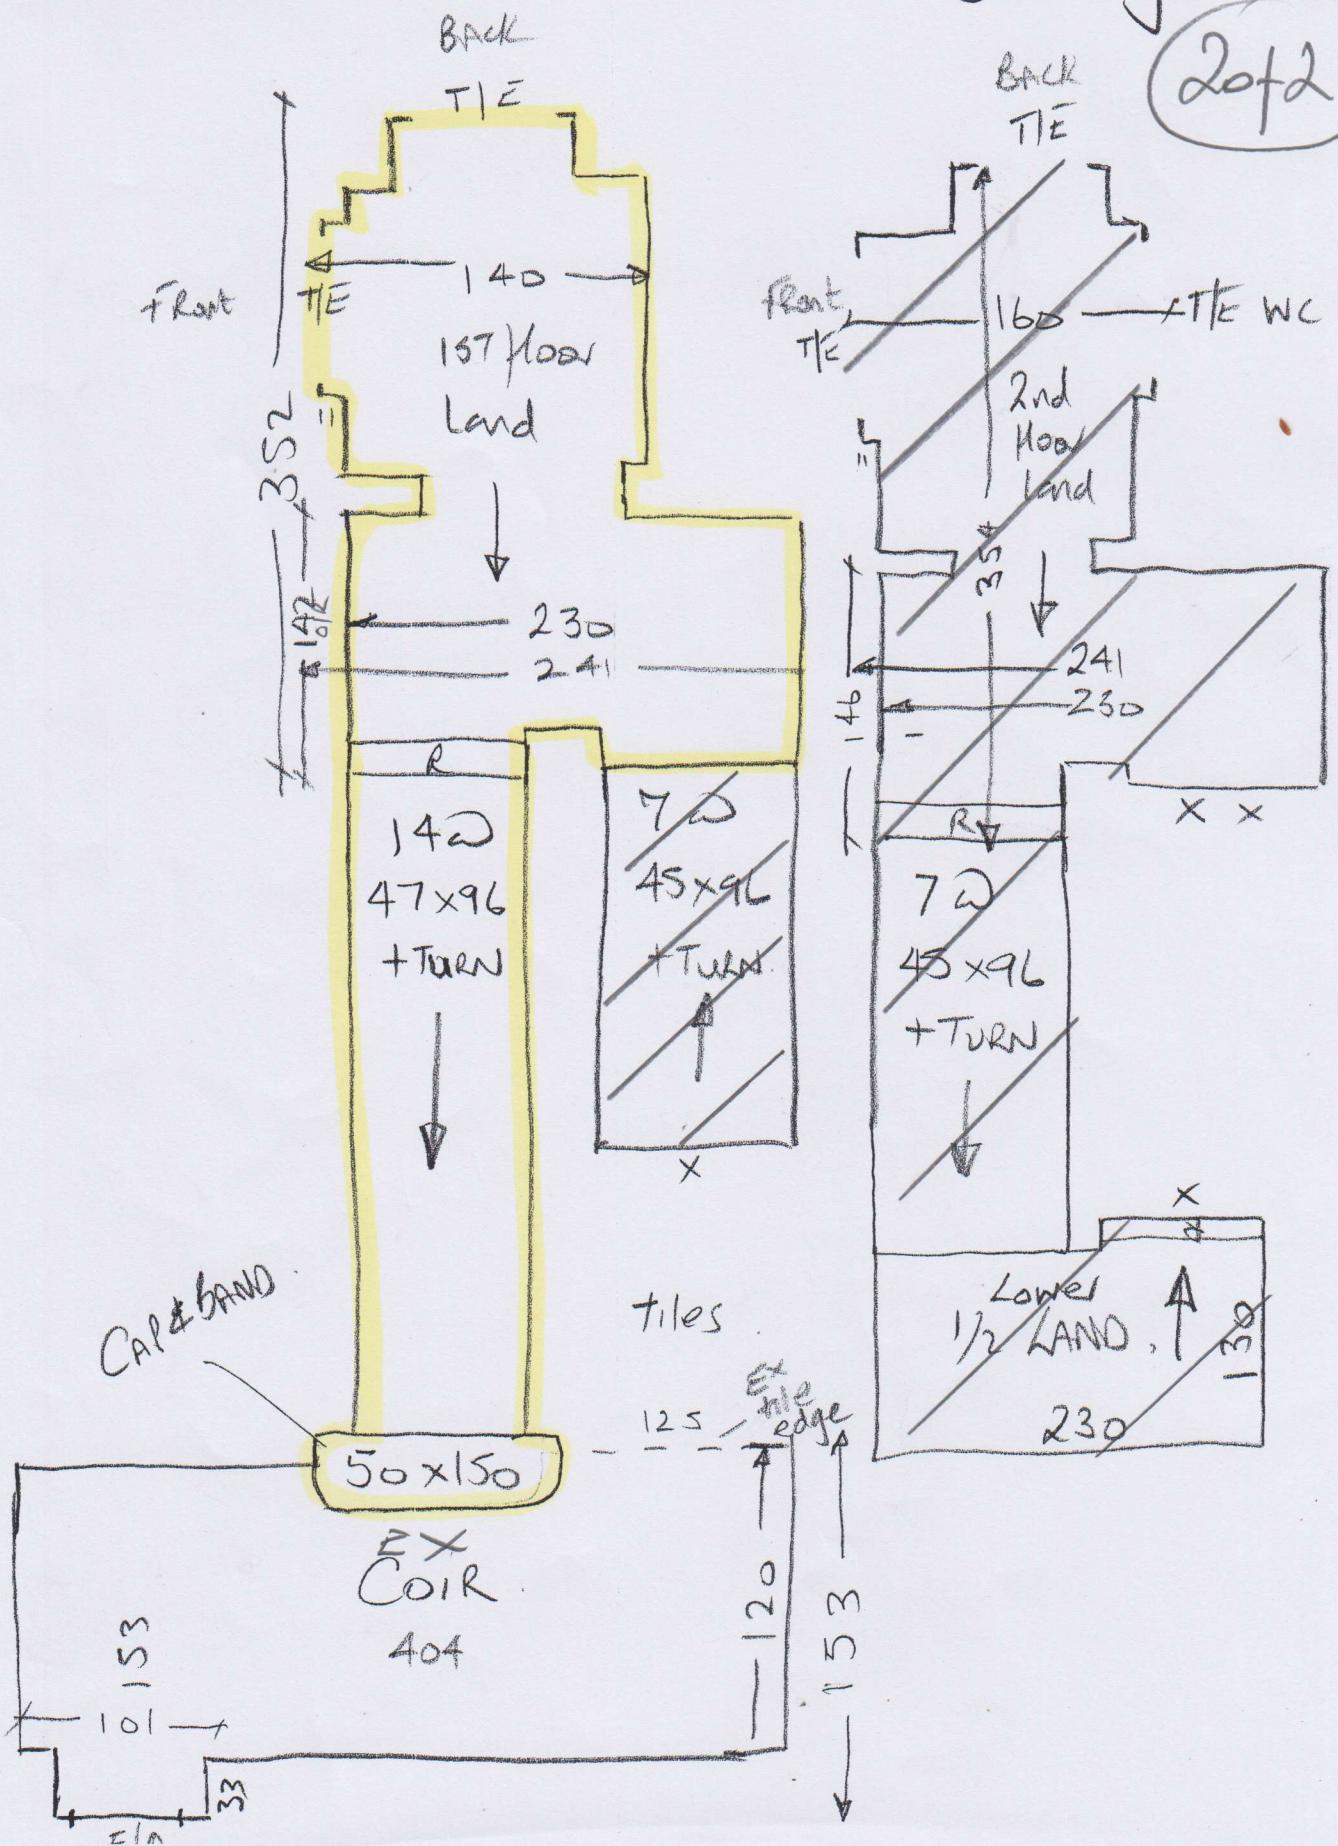 2of2
BACK
T/E
Front
T/E
140
1ST floor
Land
352
142
230
241
R
14
47x96
+TURN
7
45x96
+TURN
X
CAP & BAND
50x150
tiles
125
EX
tile
edge
EX
COIR
404
120
153
153
101
33
BACK
T/E
Front
T/E
160
T/E WC
2nd
floor
land
354
241
230
146
R
X X
7
45x96
+TURN
X
R
Lower
1/2 LAND.
130
230